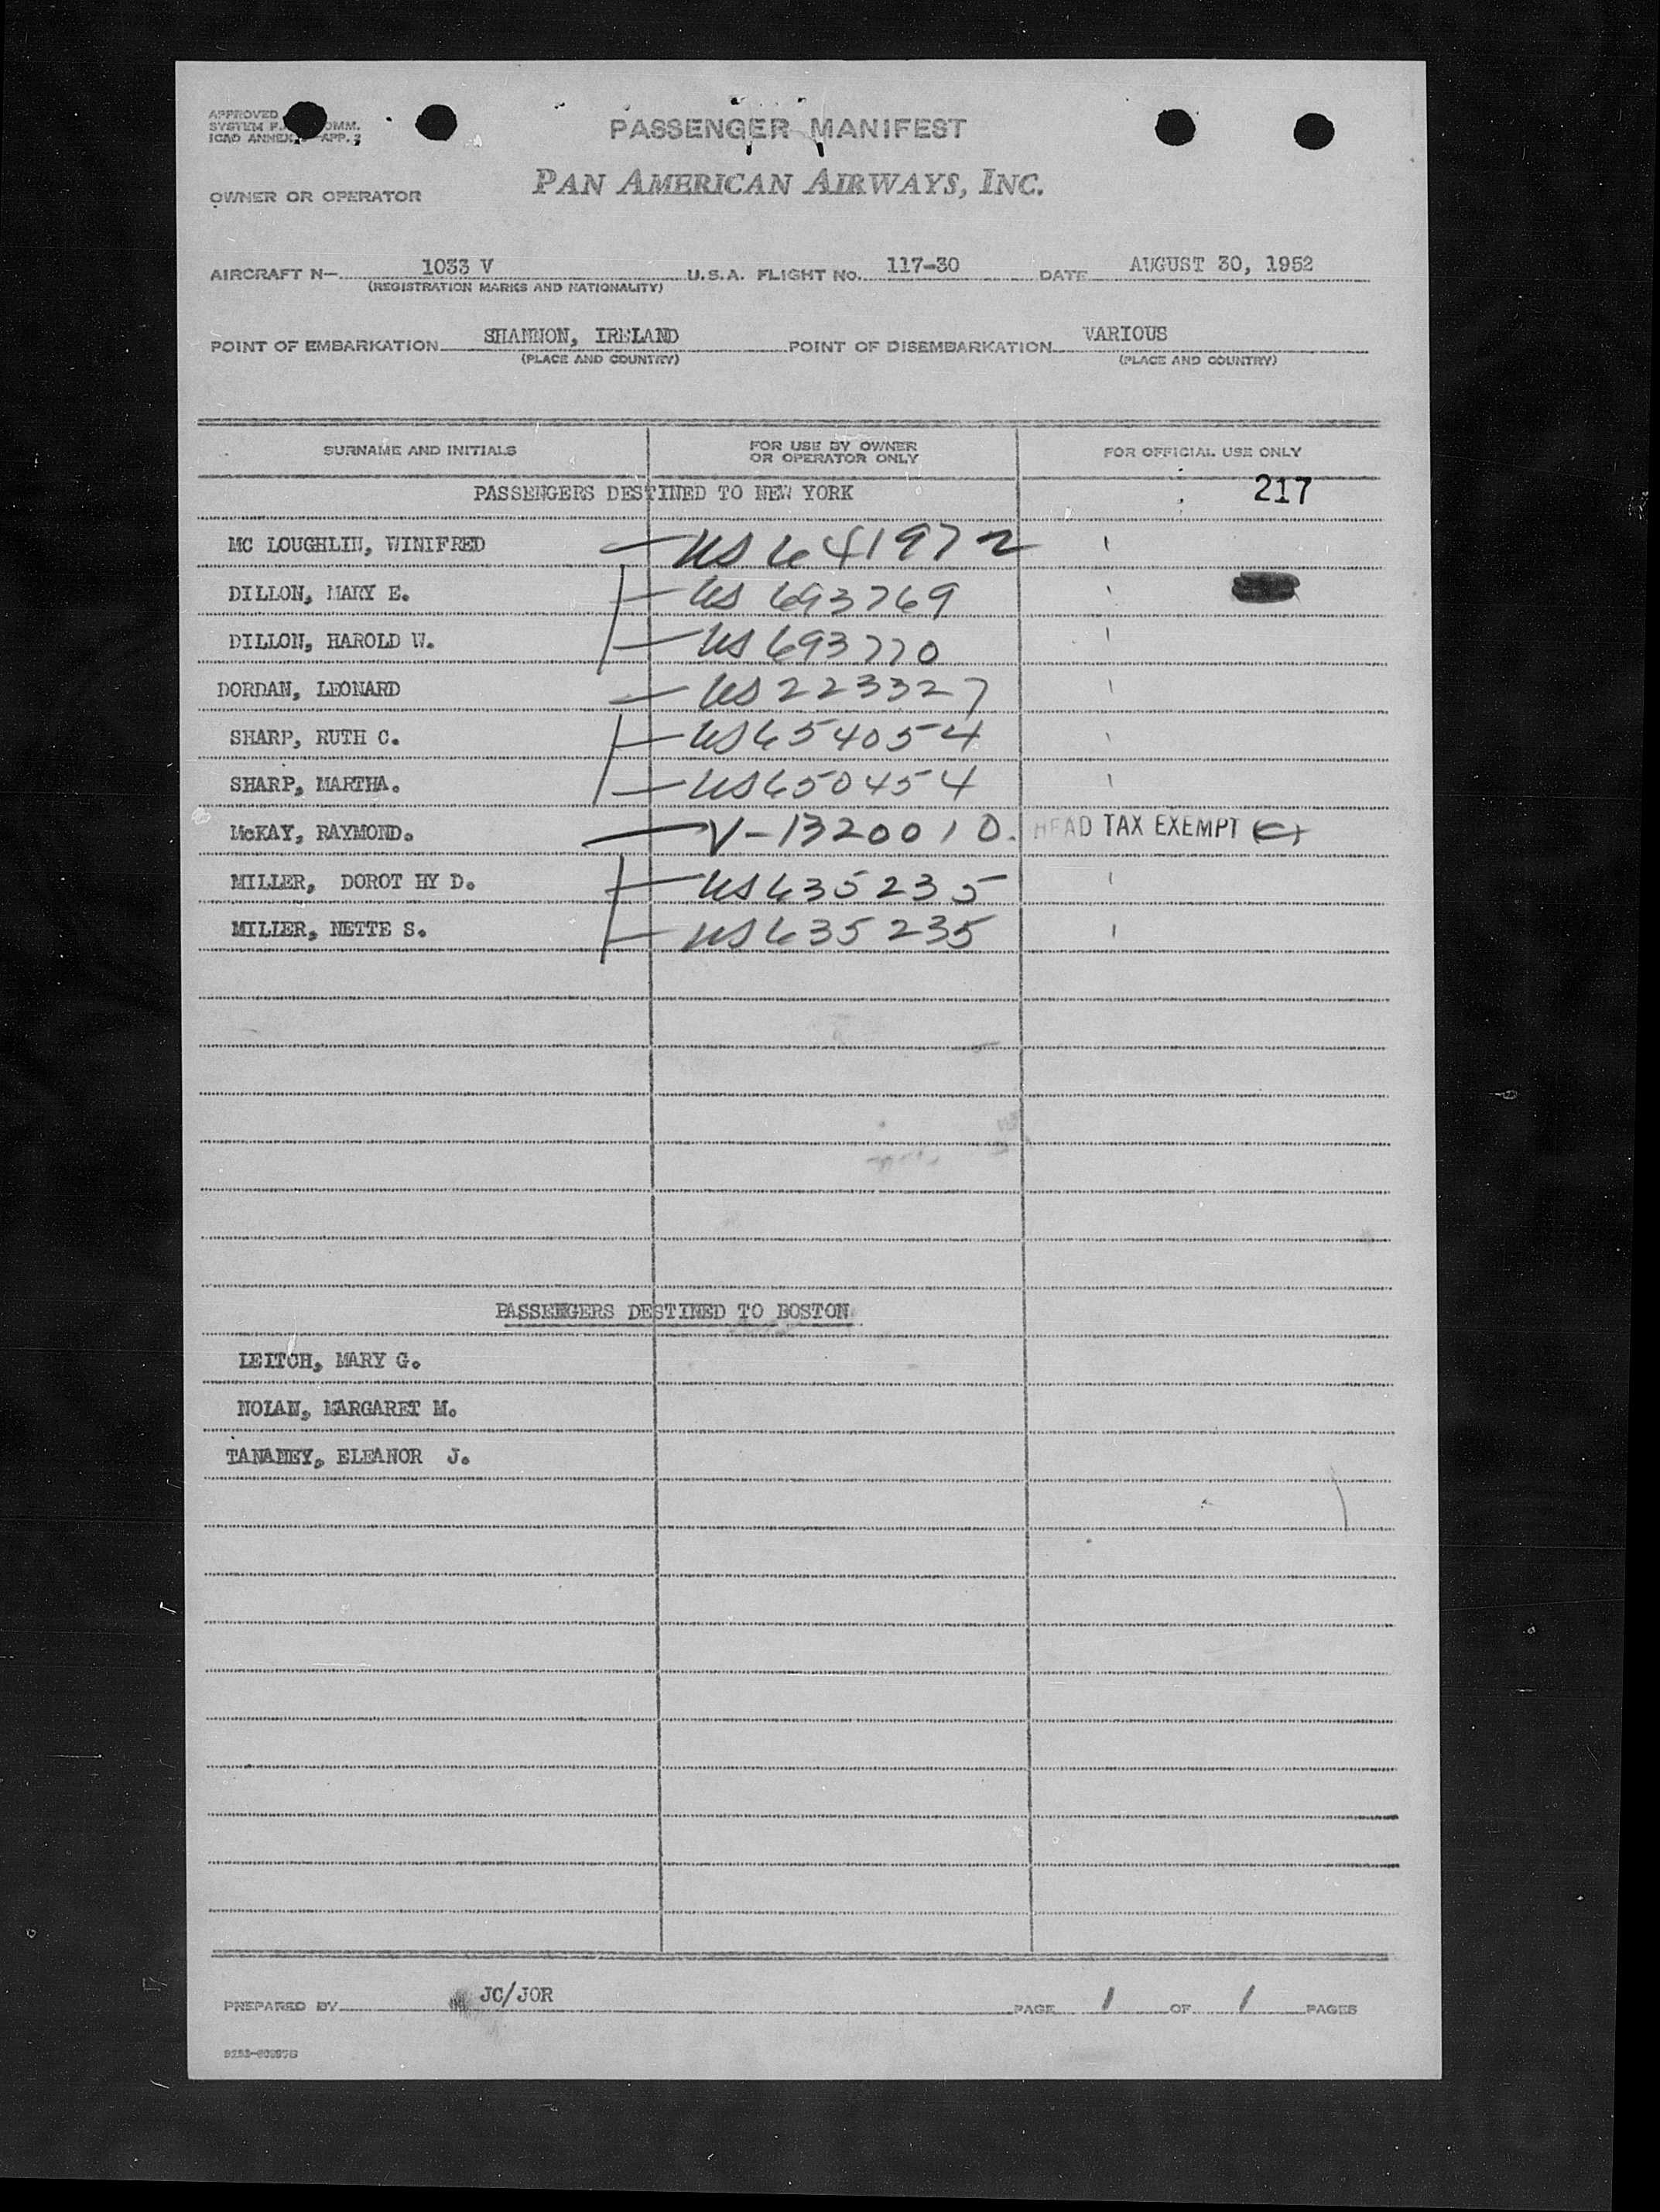 APPROVED
SYSTEM OMM.
ICAO ANNEX APP. 2
PASSENGER MANIFEST
OWNER OR OPERATOR PAN AMERICAN AIRWAYS, INC.
AIRCRAFT N— 1033 V U.S.A. FLIGHT NO. 117-30 DATE AUGUST 30, 1952
(REGISTRATION MARKS AND NATIONALITY)
POINT OF EMBARKATION SHANNON, IRELAND POINT OF DISEMBARKATION VARIOUS
(PLACE AND COUNTRY) (PLACE AND COUNTRY)
SURNAME AND INITIALS FOR USE BY OWNER OR OPERATOR ONLY FOR OFFICIAL USE ONLY
PASSENGERS DESTINED TO NEW YORK 217
MC LOUGHLIN, WINIFRED US 641972
DILLON, MARY E. US 693769
DILLON, HAROLD W. US 693770
DORDAN, LEONARD US 223327
SHARP, RUTH C. US 654054
SHARP, MARTHA. US 650454
McKAY, RAYMOND. V-1320010. HEAD TAX EXEMPT
MILLER, DOROT HY D. US 635235
MILLER, NETTE S. US 635235
PASSENGERS DESTINED TO BOSTON
LEITCH, MARY G.
NOLAN, MARGARET M.
TANANEY, ELEANOR J.
PREPARED BY JC/JOR PAGE 1 OF 1 PAGES